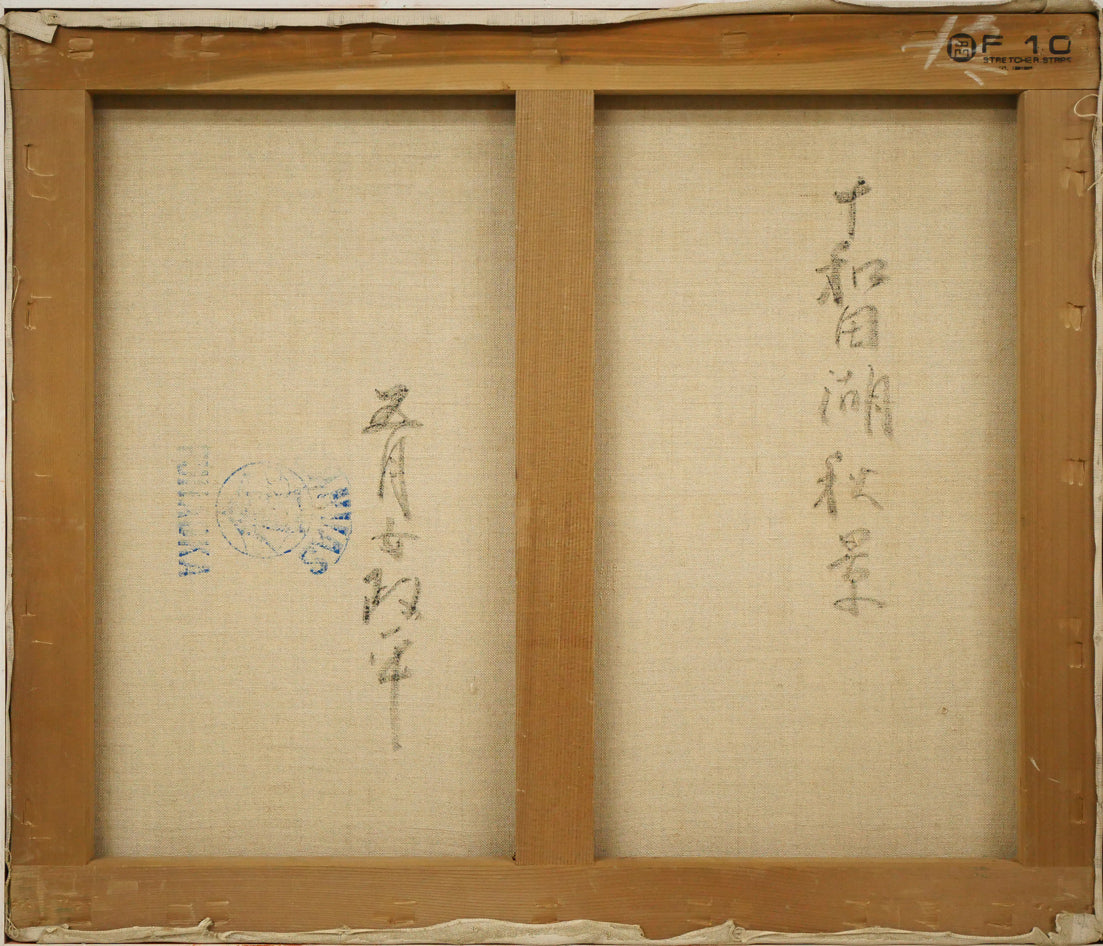 F 10
STRETCHER STRIPS
十和田湖秋景
五月女政平